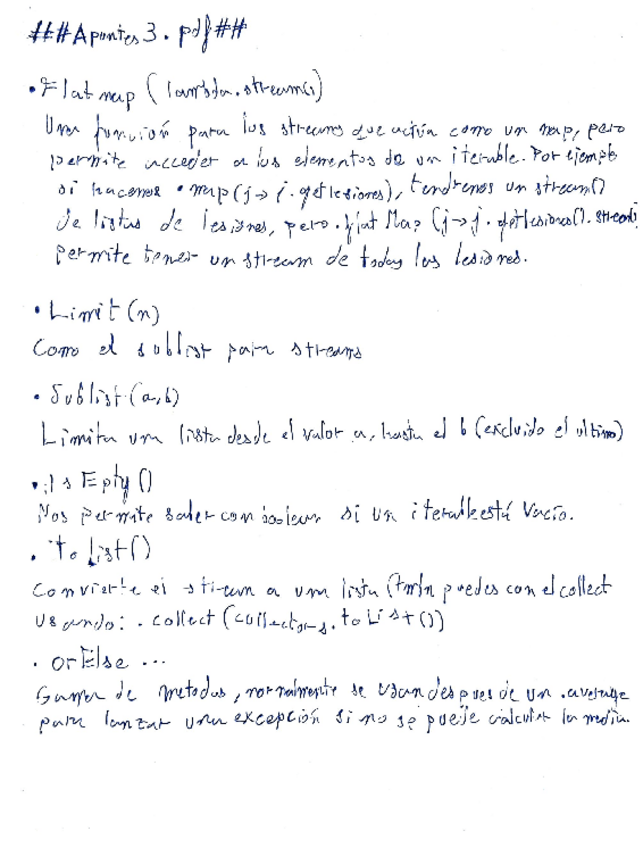 ###Apuntes3.pdf##
• Flatmap (lambda.stream())
Una función para los streams que actúa como un map, pero
permite acceder a los elementos de un iterable. Por ejemplo
si hacemos .map(j-> j.getlesiones), tendremos un stream()
de listas de lesiones, pero .flatMap (j->j.getlesiones().stream()
permite tener un stream de todas las lesiones.
• Limit(n)
Como el sublist para streams
• Sublist(a,b)
Limita una lista desde el valor a, hasta el b (excluido el ultimo)
• isEpty()
Nos permite saber con boolean si un iterable está vacío.
• toList()
Convierte el stream a una lista (tmbn puedes con el collect
usando: .collect(collectors.toList())
• orElse ...
Gama de metodos, normalmente se usan despues de un .average
para lanzar una excepción si no se puede calcular la media.